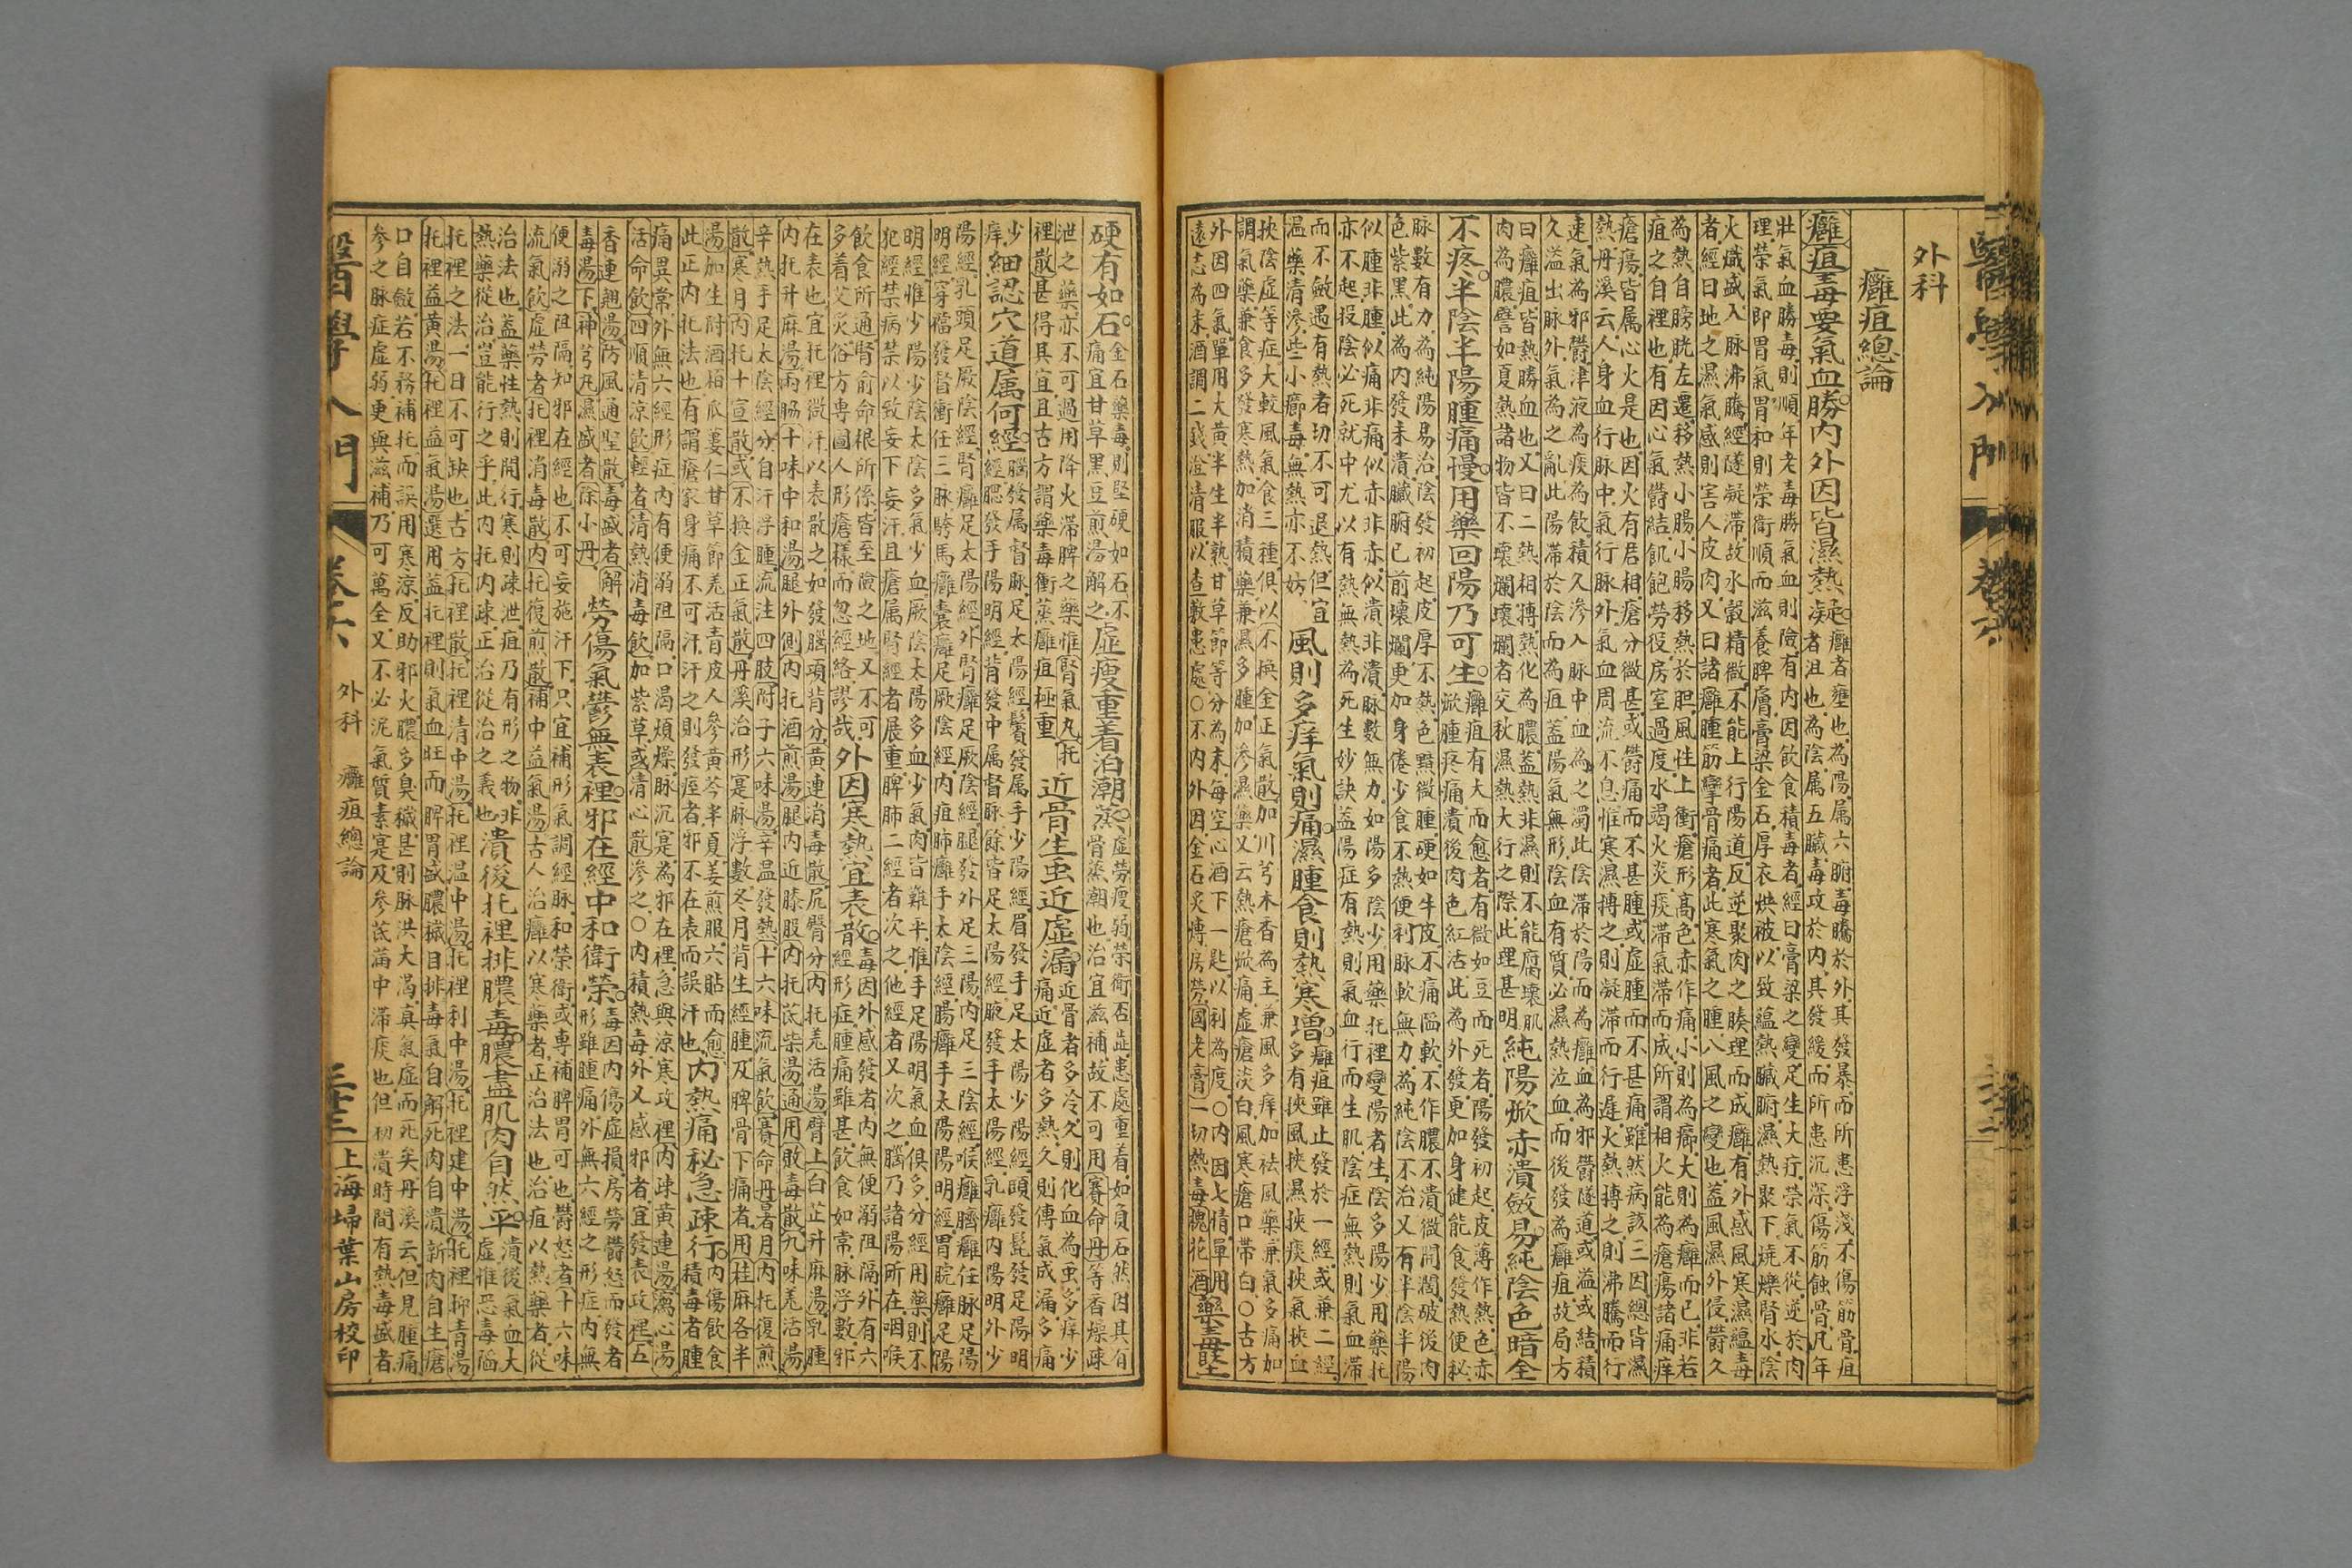 醫學入門 卷六
外科
癰疽總論
癰疽毒要氣血勝內外因皆濕熱凝
癰者壅也為陽屬六腑毒騰於外其發暴而所患浮淺不傷筋骨疽
者沮也為陰属五臟毒攻於內其發緩而所患沉深傷筋蝕骨凡年
壯氣血勝毒則順年老毒勝氣血則險有內因飲食積毒者經曰膏梁之變足生大疔榮氣不從逆於肉
理榮氣即胃氣胃和則榮衛順而滋養脾膚膏梁金石厚衣烘被以致蘊熱臟腑濕熱聚下燒爍腎水陰
火熾盛入脉沸騰經隧凝滯故水穀精微不能上行陽道反逆聚肉之腠理而成癰有外感風寒濕蘊毒
者經曰地之濕氣感則害人皮肉又曰諸癰腫筋攣骨痛者此寒氣之腫八風之變也蓋風濕外侵鬱久
為熱自膀胱左遷移熱小腸小腸移熱於胆風性上衝瘡形高色赤作痛小則為癤大則為癰而已非若
疽之自裡也有因心氣鬱結飢飽勞役房室過度水竭火炎痰滯氣滯而成所謂相火能為瘡瘍諸痛痒
瘡瘍皆属心火是也因火有居相瘡分微甚或鬱痛而不甚腫或虛腫而不甚痛雖然病該三因總皆濕
熱丹溪云人身血行脉中氣行脉外氣血周流不息惟寒濕搏之則凝滯而行遲火熱搏之則沸騰而行
速氣為邪鬱津液為痰為飲積久滲入脉中血為之濁此陰滯於陽而為癰血為邪鬱隧道或溢或結積
久溢出脉外氣為之亂此陽滯於陰而為疽蓋陽氣無形陰血有質必濕熱泣血而後發為癰疽故局方
曰癰疽皆熱勝血也又曰二熱相搏熱化為膿蓋熱非濕則不能腐壞肌
肉為膿譬如夏熱諸物皆不壞爛壞爛者交秋濕熱大行之際此理甚明
純陽焮赤潰斂易純陰色暗全
不疼半陰半陽腫痛慢用藥回陽乃可生
癰疽有大而愈者有微如豆而死者陽發初起皮薄作熱色赤
焮腫疼痛潰後肉色紅活此為外發更加身健能食發熱便秘
脉數有力為純陽易治陰發初起皮厚不熱色黯微腫硬如牛皮不痛陷軟不作膿不潰微開濶破後肉
色紫黑此為內發未潰臟腑已前壞爛更加身倦少食不熱便利脉軟無力為純陰不治又有半陰半陽
似腫非腫似痛非痛似赤非赤似潰非潰脉數無力如陽多陰少用藥托裡變陽者生陰多陽少用藥托
亦不起投陰必死就中尤以有熱無熱為死生妙訣蓋陽症有熱則氣血行而生肌陰症無熱則氣血滯
而不斂遇有熱者切不可退熱但宜
温藥清滲些小癤毒無熱亦不妨
風則多痒氣則痛濕腫食則熱寒增
癰疽雖止發於一經或兼二經
多有挾風挾濕挾痰挾氣挾血
挾陰虛等症大較風氣食三種俱以不換金正氣散加川芎木香為主兼風多痒加祛風藥兼氣多痛加
調氣藥兼食多發寒熱加消積藥兼濕多腫加滲濕藥又云熱瘡焮痛虛瘡淡白風寒瘡口帶白〇古方
外因四氣單用大黃半生半熟甘草節等分為末每空心酒下一匙以利為度〇內因七情單用
遠志為末酒調二錢澄清服以查敷患處〇不內外因金石炙煿房勞國老膏一切熱毒槐花酒
藥毒堅
硬有如石
金石藥毒則堅硬如石不
痛宜甘草黑豆煎湯解之
虛瘦重着泊潮蒸
虛勞瘦弱榮衛否澁患處重着如負石然因其有
骨蒸潮也治宜滋補故不可用賽命丹等香燥疎
泄之藥亦不可過用降火滯脾之藥惟腎氣丸托
裡散甚得其宜且古方謂藥毒衝蒸癰疽極重
近骨生虫近虛漏
近骨者多冷久則化血為虫多痒少
痛近虛者多熱久則傳氣成漏多痛
少痒
細認穴道属何經
腦發属督脉足太陽經鬢發属手少陽經眉發手足太陽少陽經頤發髭發足陽明
經腮發手陽明經背發中属督脉餘皆足太陽經腋發手太陽經乳癰內陽明外少
陽經乳頭足厥陰經腎癰足太陽經外腎癰足厥陰經腿發外足三陽內足三陰經喉癰臍癰任脉足陽
明經穿襠發督衝任三脉騎馬癰囊癰足厥陰經內疽肺癰手太陰經腸癰手太陽陽明經胃脘癰足陽
明經惟少陽少陰太陰多氣少血厥陰太陽多血少氣肉皆難平惟手足陽明氣血俱多分經用藥則不
犯經禁病禁以致妄下妄汗且瘡属腎經者展重脾肺二經者次之他經者又次之腦乃諸陽所在咽喉
飲食所通腎俞命根所係皆至險之地又不可
多着艾灸俗方專圖人形瘡樣而忽經絡謬哉
外因寒熱宜表散
毒因外感發者內無便溺阻隔外有六
經形症腫痛雖甚飲食如常脉浮數邪
在表也宜托裡微汗以表散之如發腦項背分黃連消毒散尻臀分內托羌活湯臂上白芷升麻湯乳腫
內托升麻湯兩脇十味中和湯腿外側內托酒煎湯腿內近膝股內托芪柴湯通用敗毒散九味羌活湯
辛熱手足太陰經分自汗浮腫流注四肢附子六味湯辛温發熱十六味流氣飲賽命丹暑月內托復煎
散寒月內托十宣散或不換金正氣散丹溪治形寔脉浮數冬月背生經腫及脾骨下痛者用桂麻各半
湯加生附酒栢瓜蔞仁甘草節羌活青皮人參黃芩半夏姜煎服六貼而愈
此正內托法也有謂瘡家身痛不可汗汗之則發痓者邪不在表而誤汗也
內熱痛秘急疎行
內傷飲食
積毒者腫
痛異常外無六經形症內有便溺阻隔口渴煩燥脉沉寔為邪在裡急與涼寒攻裡內疎黃連湯瀉心湯
活命飲四順清涼飲輕者清熱消毒飲加紫草或清心散滲之〇內積熱毒外又感邪者宜發表攻裡五
香連翹湯防風通聖散毒盛者解
毒湯下神芎丸濕盛者除小丹
勞傷氣鬱無表裡邪在經中和衛榮
毒因內傷虛損房勞鬱怒而發者
形雖腫痛外無六經之形症內無
便溺之阻隔知邪在經也不可妄施汗下只宜補形氣調經脉和榮衛或專補脾胃可也鬱怒者十六味
流氣飲虛勞者托裡消毒散內托復煎散補中益氣湯古人治癰以寒藥者正治法也治疽以熱藥者從
治法也蓋藥性熱則開行寒則疎泄疽乃有形之物非
熱藥從治豈能行之乎此內托內疎正治從治之義也
潰後托裡排膿毒膿盡肌肉自然平
潰後氣血大
虛惟恐毒陷
托裡之法一日不可缺也古方托裡散托裡清中湯托裡温中湯托裡利中湯托裡建中湯托裡抑青湯
托裡益黃湯托裡益氣湯選用蓋托裡則氣血旺而脾胃盛膿穢自排毒氣自解死肉自潰新肉自生瘡
口自斂若不務補托而誤用寒涼反助邪火膿多臭穢甚則脉洪大渴真氣虛而死矣丹溪云但見腫痛
參之脉症虛弱更與滋補乃可萬全又不必泥氣質素寔及參芪滿中滯痰也但初潰時間有熱毒盛者
醫學入門 卷六 外科 癰疽總論 上海埽葉山房校印